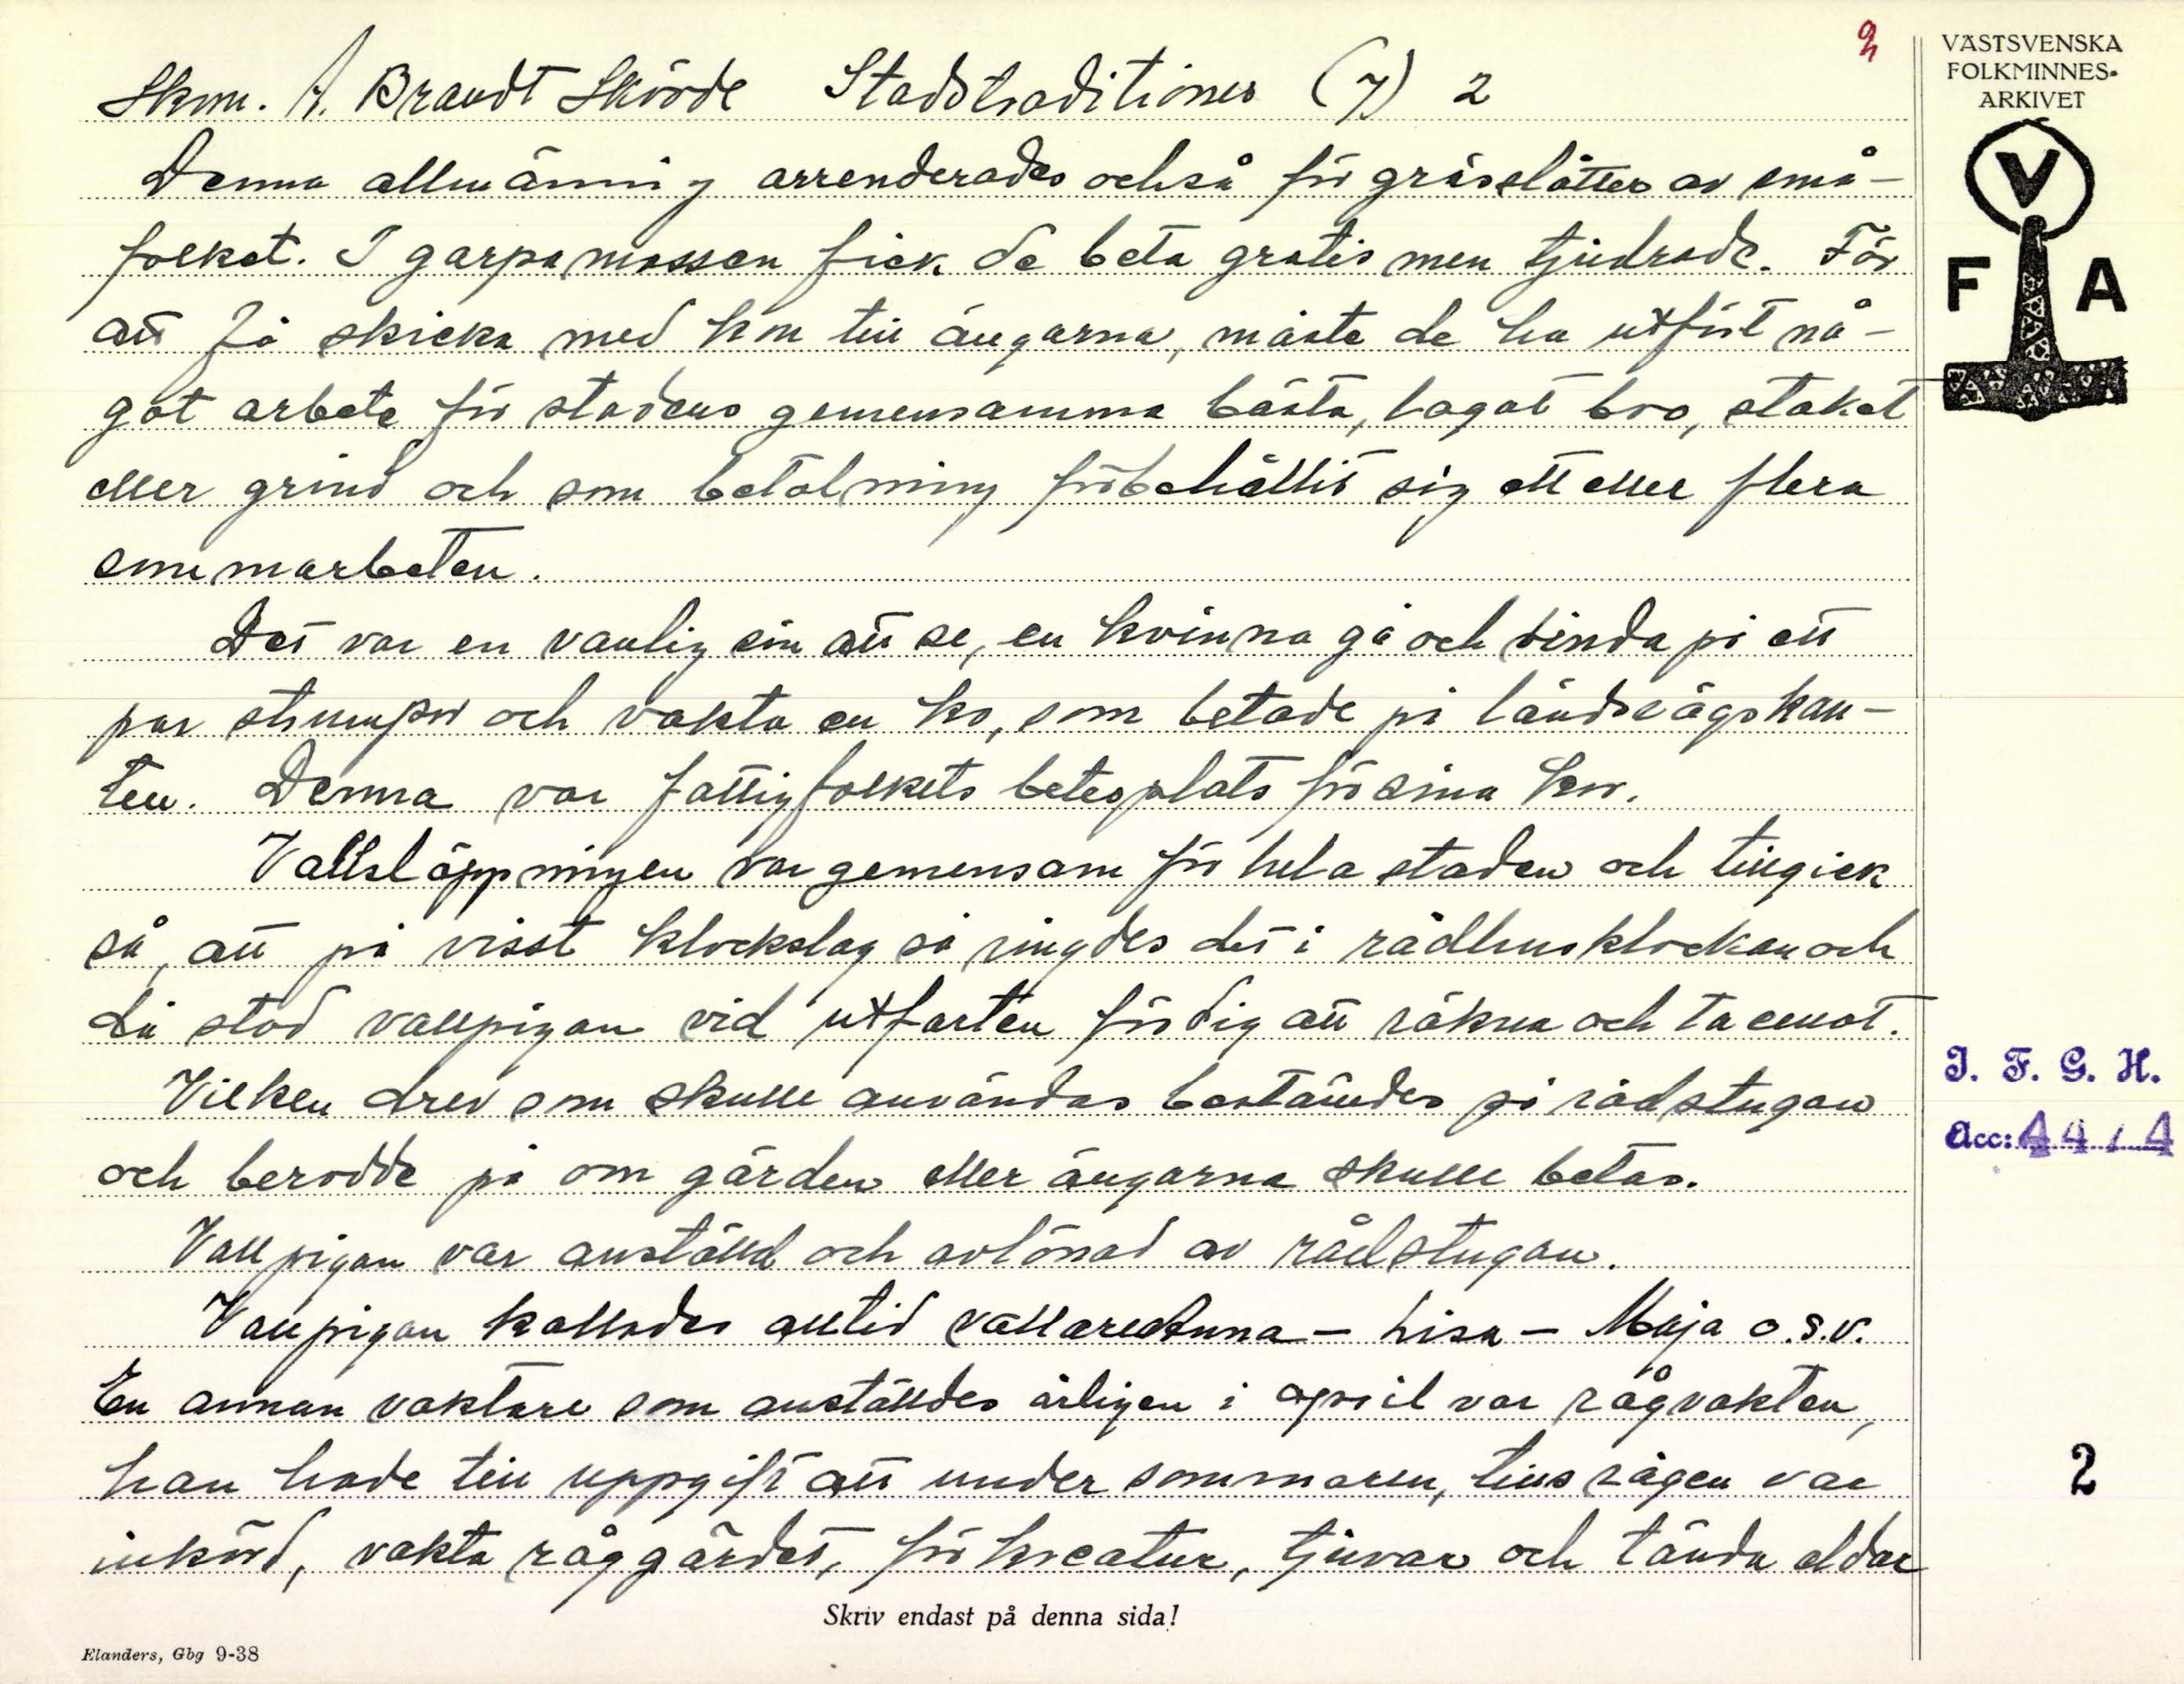 2
VÄSTSVENSKA
FOLKMINNES-
ARKIVET
V
F A
Skom. A. Brandt Skövde Stadstraditioner (7) 2
Denna allmänning arrenderades också för grässlåtter av små-
folket. I garpamossen fick de beta gratis men tjudrade. För
att få skicka med kon till ängarna, måste de ha utfört nå-
got arbete för stadens gemensamma bästa, lagat bro, staket
eller grind och som betalning förbehållit sig ett eller flera
sommarbeten.
Det var en vanlig syn att se, en kvinna gå och binda på ett
par strumpor och vakta en ko, som betade på landsvägskan-
ten. Denna var fattigfolkets betesplats för sina kor.
Vallsläppningen var gemensam för hela staden och tillgick
så, att på visst klockslag så ringdes det i rådhusklockan och
då stod vallpigan vid utfarten färdig att räkna och ta emot.
Vilken drev som skulle användas bestämdes på rådstugan
och berodde på om gärden eller ängarna skulle betas.
Vallpigan var anställd och avlönad av rådstugan.
Vallpigan kallades alltid vallareAnna - Lisa - Maja o.s.v.
En annan vaktare som anställdes årligen i april var rågvakten,
han hade till uppgift att under sommaren, tills rågen var
inkörd, vakta råggärdet, för kreatur, tjuvar och tända eldar
J. F. G. H.
Acc: 4414
2
Skriv endast på denna sida!
Elanders, Gbg 9-38